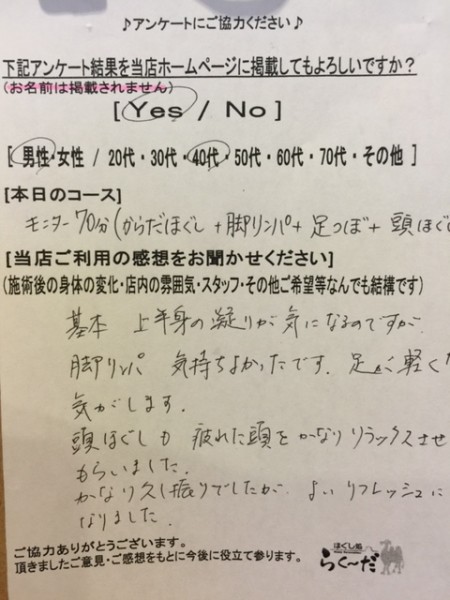 ♪アンケートにご協力ください♪
下記アンケート結果を当店ホームページに掲載してもよろしいですか？
(お名前は掲載されません)
[ Yes / No ]
[ 男性・女性 / 20代・30代・40代・50代・60代・70代・その他 ]
[本日のコース]
モニター70分(からだほぐし +脚リンパ+ 足つぼ+ 頭ほぐ
[当店ご利用の感想をお聞かせください]
(施術後の身体の変化・店内の雰囲気・スタッフ・その他ご希望等なんでも結構です)
基本 上半身の凝りが気になるのですが
脚リンパ 気持ちよかったです. 足が軽く
気がします.
頭ほぐしも 疲れた頭をかなりリラックスさせ
もらいました.
かなり久し振りでしたが. よいリフレッシュに
なりました.
ご協力ありがとうございます。
頂きましたご意見・ご感想をもとに今後に役立て参ります。
ほぐし処
らく〜だ